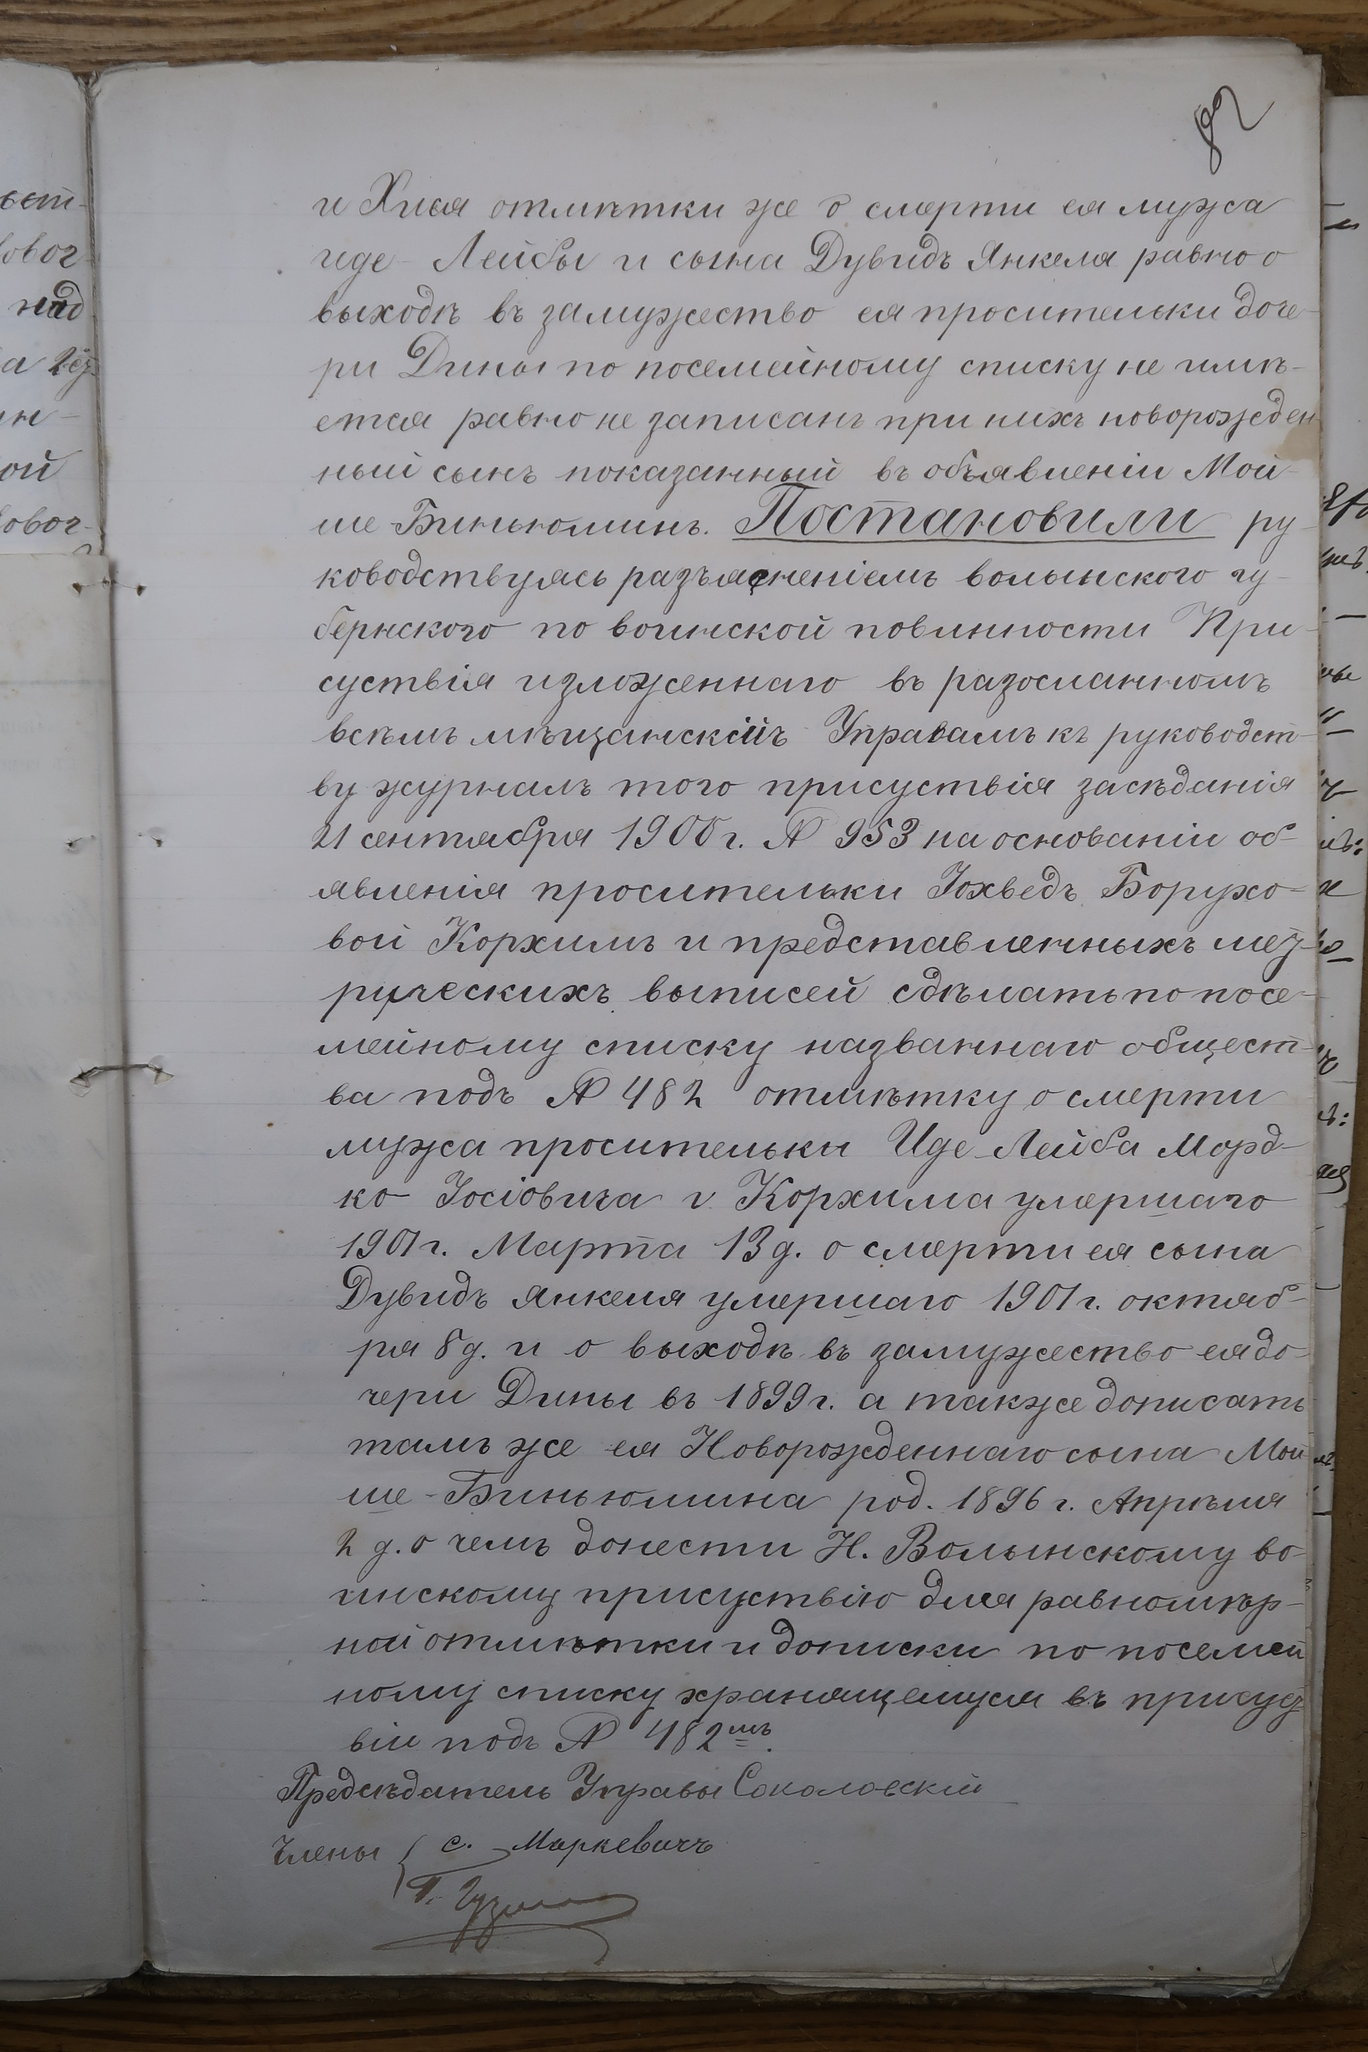 82
и Хися отмѣтки же о смерти ея мужа
Иде-Лейбы и сына Дувидъ Янкеля равно о
выходѣ въ замужество ея просительки доче-
ри Дины по посемейному списку не имѣ-
ется равно не записанъ при нихъ новорожден
ный сынъ показанный въ объявленіи Мой-
ше-Биньюминъ. Постановили ру-
ководствуясь разъясненіемъ волынского гу-
бернского по воинской повинности При-
суствія изложеннаго въ разосланномъ
всѣмъ мѣщанскимъ Управамъ къ руководст-
ву журналъ того присуствія засѣданія
21 сентября 1900 г. № 953 на основаніи об-
явленія просительки Іохведъ Борухо-
вой Корхимъ и представленныхъ мет-
рическихъ выписей сдѣлать по посе-
мейному списку названнаго общест-
ва подъ № 482 отмѣтку о смерти
мужа просительки Иде-Лейба Морд-
ко Іосіовича Корхима умершаго
1901 г. Марта 13 д. о смерти ея сына
Дувидъ Янкеля умершаго 1901 г. октяб-
ря 8 д. и о выходѣ въ замужество ея до-
чери Дины въ 1899 г. а также дописать
тамъ же ея Новорожденнаго сына Мои
ше-Биньюмина род. 1896 г. Апрѣля
2 д. о чемъ донести Н. Волынскому во-
инскому присуствію для равномѣр-
ной отмѣтки и дописки по посемей
ному списку хранящемуся въ присут
віи подъ № 482мъ.
Предсѣдатель Управы Соколовскій
Члены { С. Маркевичъ